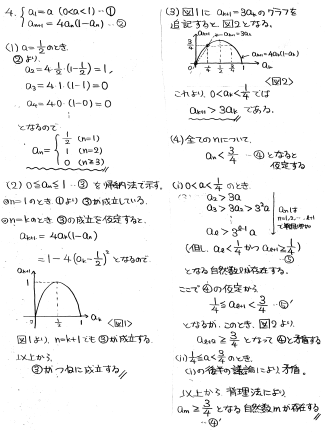 4. { a₁ = a (0<a<1) …①
a_{n+1} = 4a_n(1-a_n) …②
(1) a=1/2 のとき、
②より、
a₂ = 4・1/2・(1-1/2) = 1,
a₃ = 4・1・(1-1) = 0
a₄ = 4・0・(1-0) = 0
⋮
となるので
a_n = { 1/2 (n=1)
1 (n=2)
0 (n≧3)
(2) 0≦a_n≦1 …③ を帰納法で示す。
◎n=1のとき、①より③が成立している。
◎n=kのとき、③の成立を仮定すると、
a_{k+1} = 4a_k(1-a_k)
= 1-4(a_k-1/2)² となるので
a_{k+1}
1
0 1/2 1 a_k
<図1>
図1より、n=k+1でも③が成立する。
以上から、
③がつねに成立する。
(3) 図1に a_{k+1}=3a_k のグラフを
追記すると、図2となる。
a_{k+1} a_{k+1}=3a_k
a_{k+1}=4a_k(1-a_k)
<図2>
これより、0<a_k<1/4 では
a_{k+1} > 3a_k である。
(4) 全てのnについて、
a_n < 3/4 …④ となると
仮定する
(i) 0<a<1/4 のとき、
a₂ > 3a
a₃ > 3a₂ > 3²a
⋮
a_ℓ > 3^{ℓ-1}a
(但し、a_ℓ < 1/4 かつ a_{ℓ+1} ≧ 1/4)
…⑤
となる自然数ℓが存在する。
ここで④の仮定から
1/4 ≦ a_{ℓ+1} < 3/4 …⑤'
となるが、このとき、図2より、
a_{ℓ+2} ≧ 3/4 となって④と矛盾する
(ii) 1/4≦a<3/4 のとき、
(i)の後半の議論により矛盾。
以上から、背理法により
a_m ≧ 3/4 となる自然数mが存在する
…④'